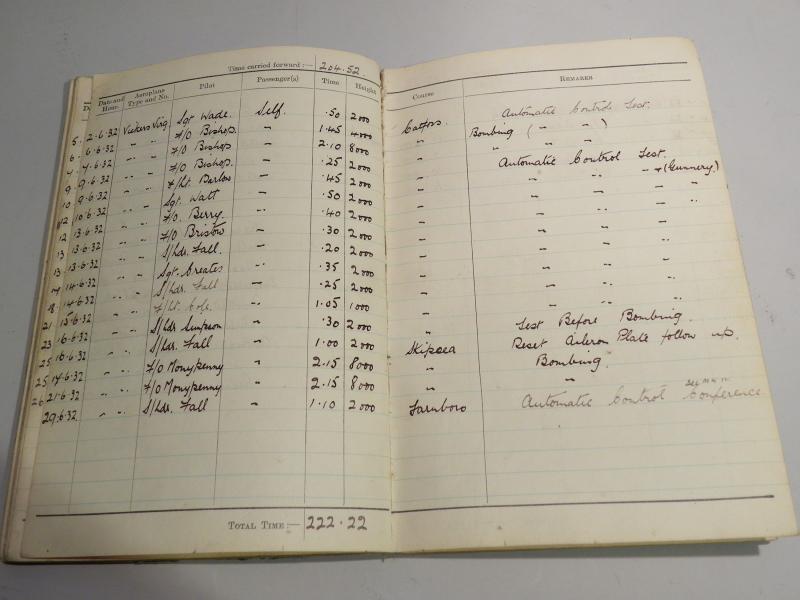 Time carried forward :— 204.52.
Date and Hour. Aeroplane Type and No. Pilot Passenger(s) Time Height Course REMARKS
2.6.32 Vickers Virg. Sgt Wade. Self. .50 2000 Catfoss. Automatic Control Test.
6.6.32 " " F/O Bishop. " 1.45 4000 " Bombing ( " " )
F/O Bishop " 2.10 8000 " " " "
9.6.32 " " F/O Bishop. " .25 2000 " Automatic Control Test.
9.6.32 " " F/Lt. Barlow " .45 2000 " " " " + (Gunnery)
10.6.32 " " Sgt Watt " .50 2000 " " " "
F/O. Berry. " .40 2000 " " " "
13.6.32 " " F/O Bristow " .30 2000 " " " "
13.6.32 " " S/Ldr. Fall. " .20 2000 " " " "
14.6.32 " " Sgt. Greates " .35 2000 " " " "
14.6.32 " " S/Ldr. Fall " .25 2000 " " " "
15.6.32 " " F/Lt. " 1.05 1000 " " " "
16.6.32 " " S/Ldr Simpson " .30 2000 " Test Before Bombing.
16.6.32 " " S/Ldr. Fall " 1.00 2000 Skipsea Reset Aileron Plate follow up.
F/O Monypenny " 2.15 8000 " Bombing.
21.6.32 " " F/O Monypenny " 2.15 8000 " "
29.6.32 " " S/Ldr. Fall " 1.10 2000 Farnboro Automatic Control Conference
TOTAL TIME :— 222.22